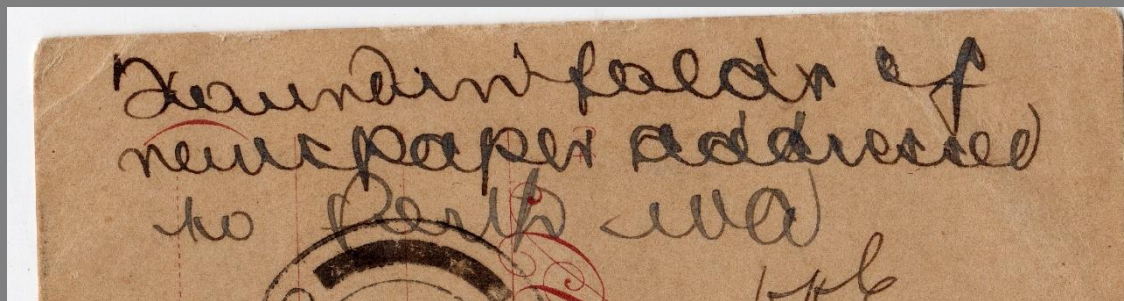 Found in folds of
newspaper addressed
to Perth WA